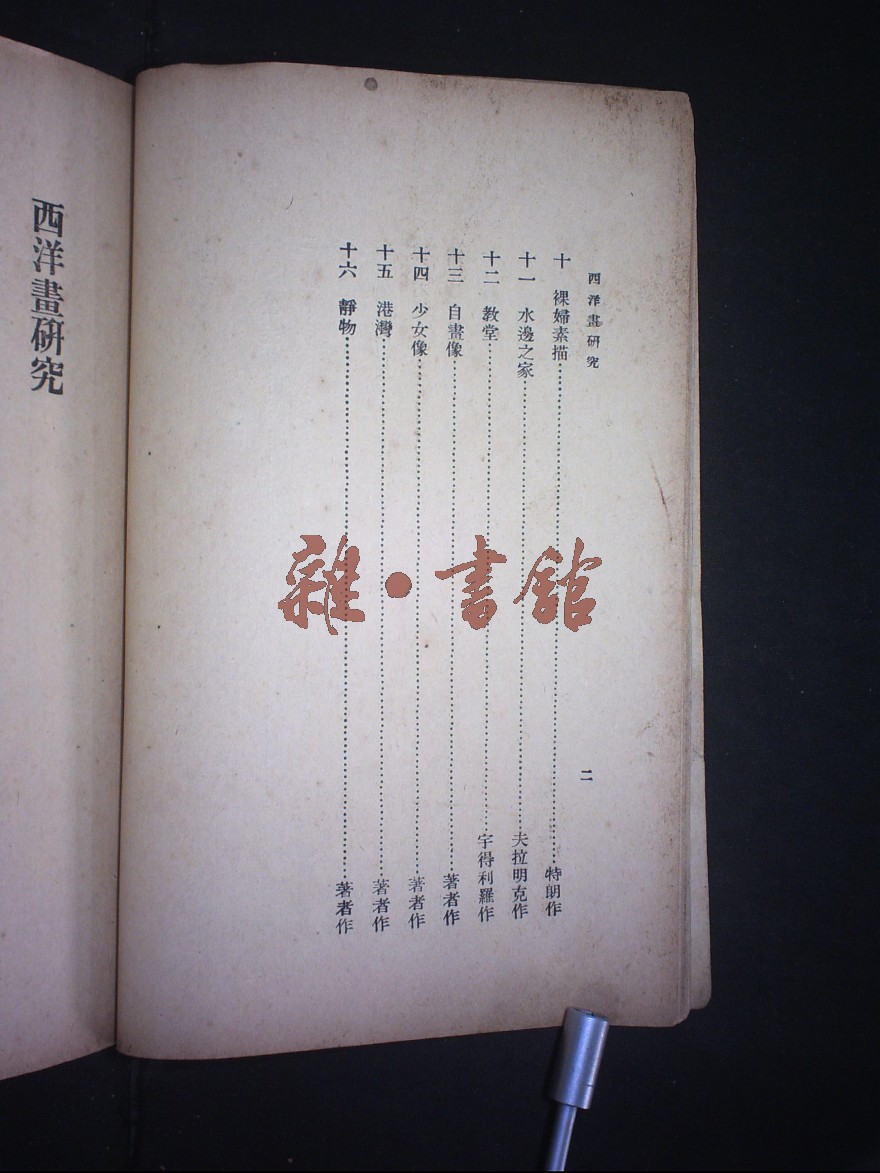 西洋畫研究
二
十 裸婦素描……特朗作
十一 水邊之家……夫拉明克作
十二 教堂……宇得利羅作
十三 自畫像……著者作
十四 少女像……著者作
十五 港灣……著者作
十六 靜物……著者作
西洋畫研究
雜·書館